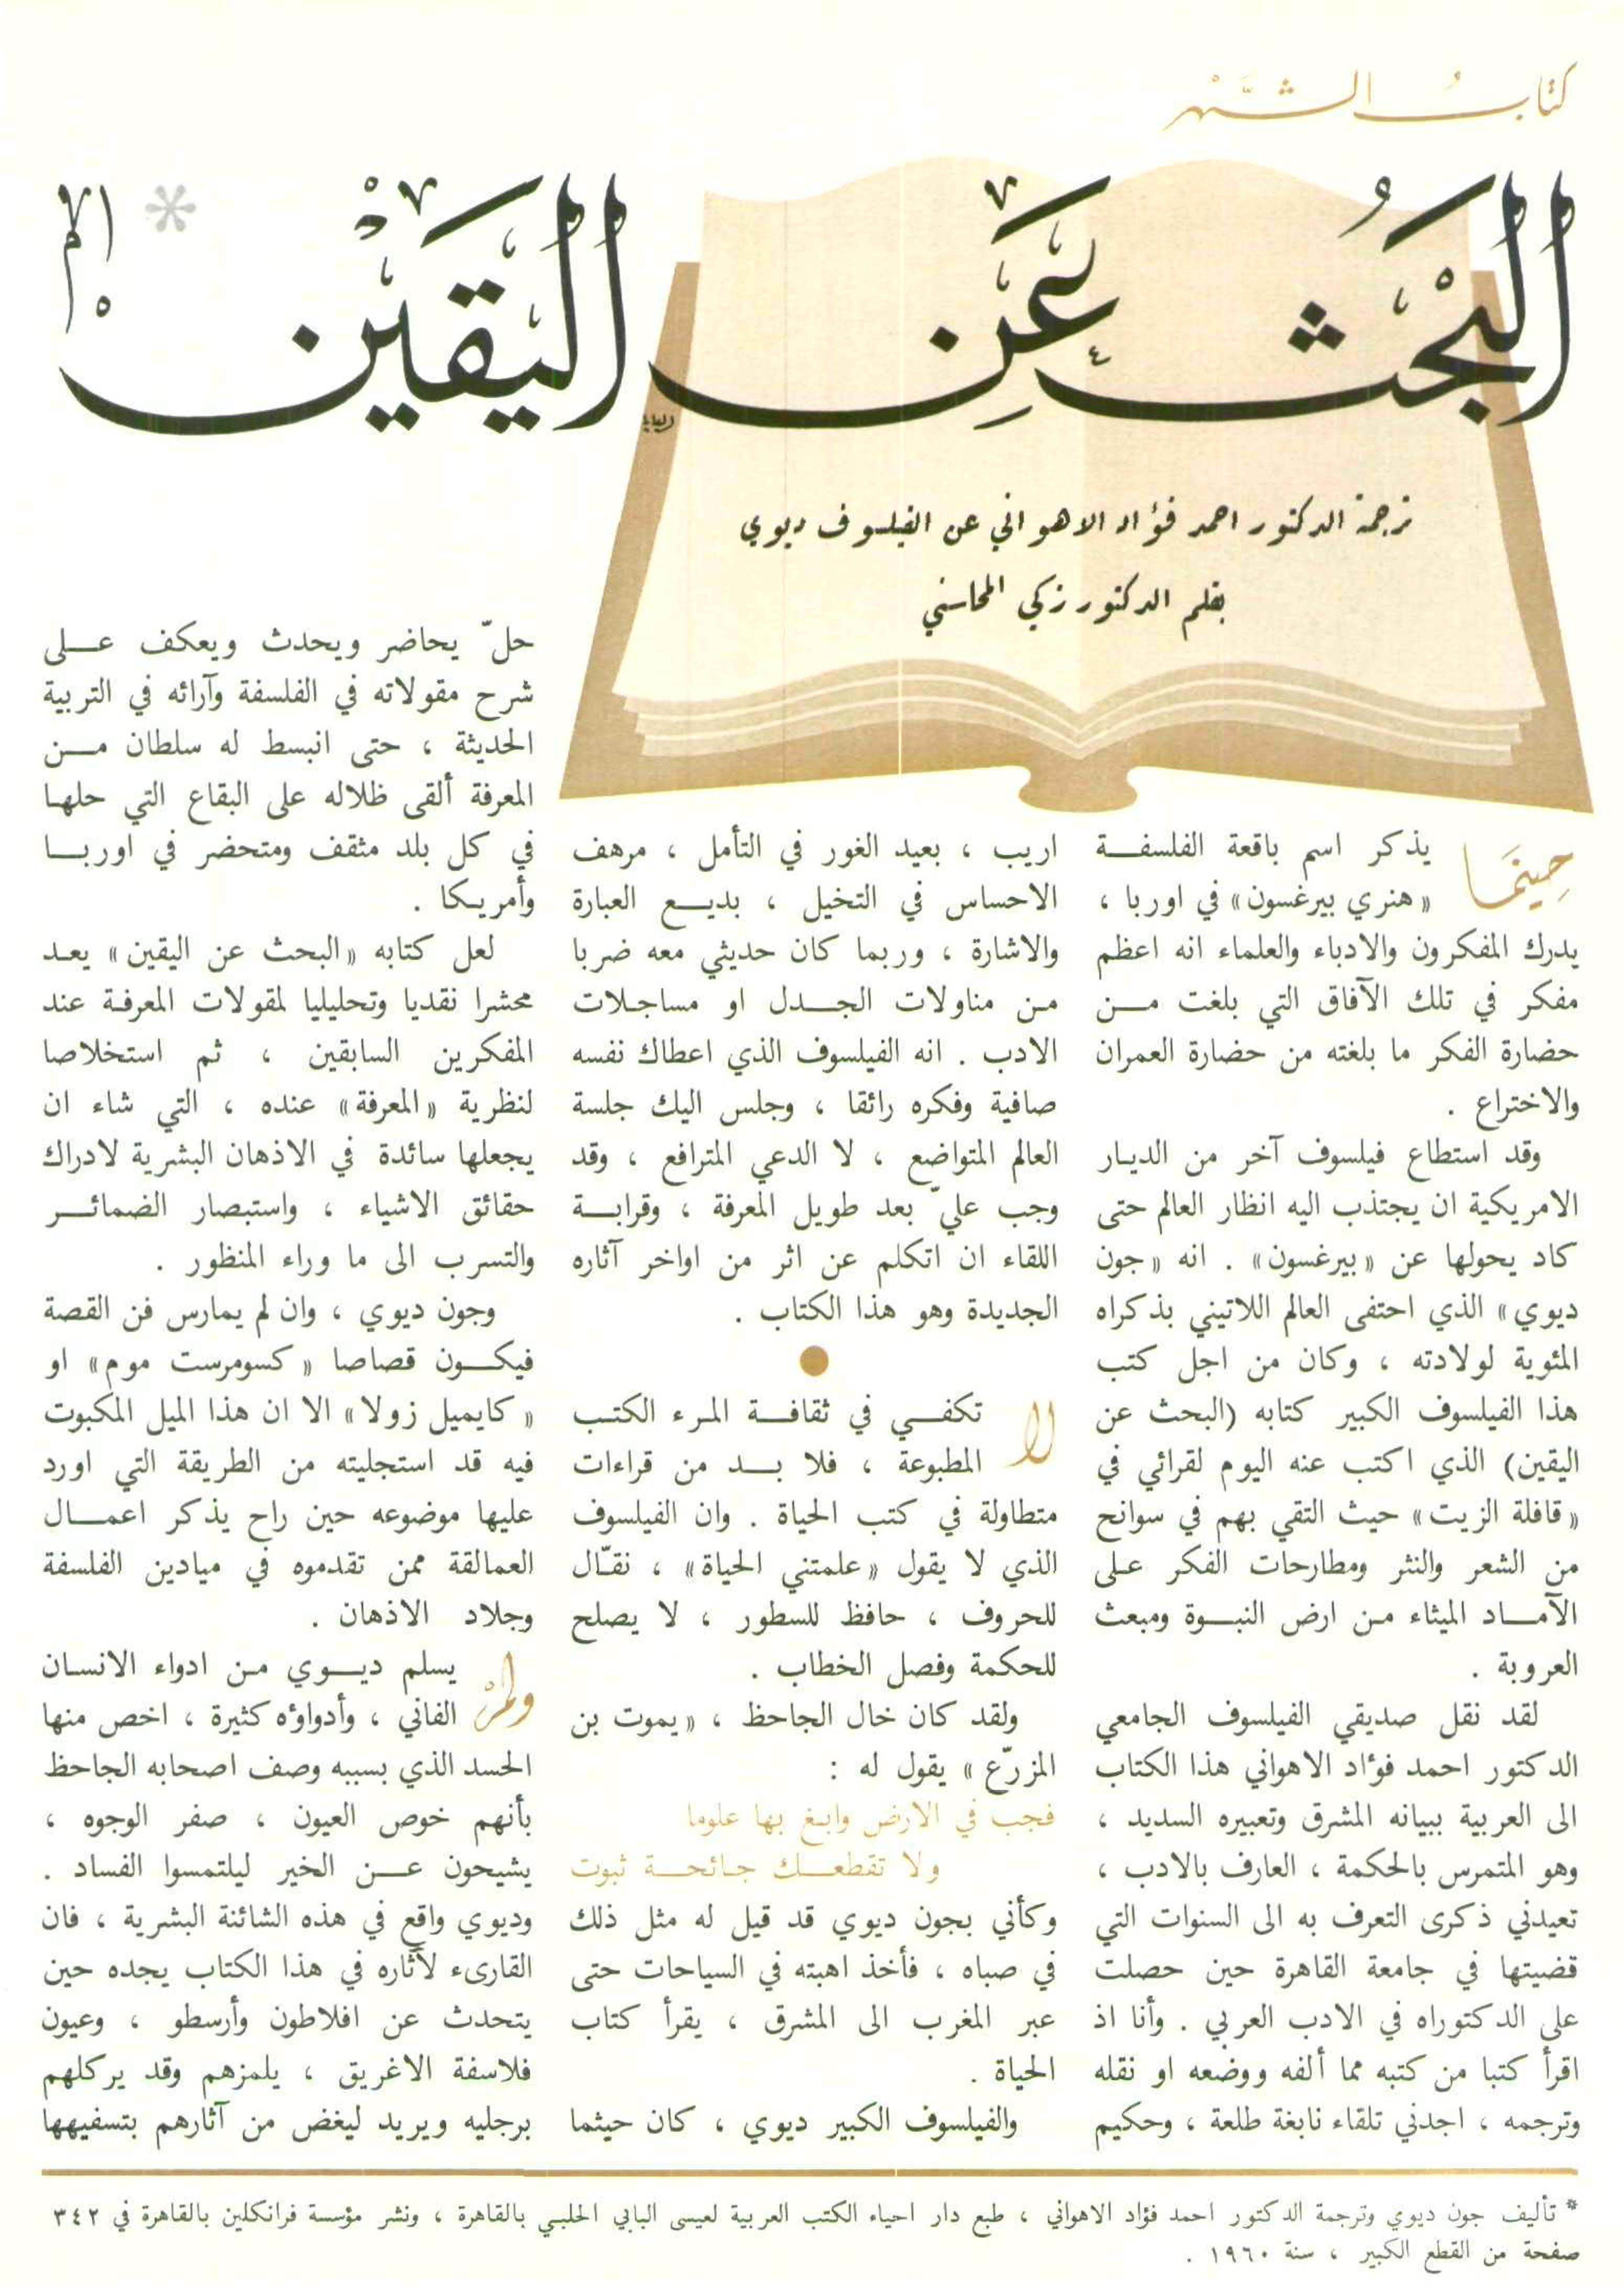 كتاب الشهر
البحث عن اليقين *
ترجمة الدكتور احمد فؤاد الاهواني عن الفيلسوف ديوي
بقلم الدكتور زكي المحاسني
حينما يذكر اسم باقعة الفلسفة
« هنري بيرغسون» في اوربا ،
يدرك المفكرون والادباء والعلماء انه اعظم
مفكر في تلك الآفاق التي بلغت من
حضارة الفكر ما بلغته من حضارة العمران
والاختراع .
وقد استطاع فيلسوف آخر من الديار
الامريكية ان يجتذب اليه انظار العالم حتى
كاد يحولها عن « بيرغسون» . انه « جون
ديوي» الذي احتفى العالم اللاتيني بذكراه
المئوية لولادته ، وكان من اجل كتب
هذا الفيلسوف الكبير كتابه (البحث عن
اليقين) الذي اكتب عنه اليوم لقرائي في
« قافلة الزيت» حيث التقي بهم في سوانح
من الشعر والنثر ومطارحات الفكر على
الآماد الميثاء من ارض النبوة ومبعث
العروبة .
لقد نقل صديقي الفيلسوف الجامعي
الدكتور احمد فؤاد الاهواني هذا الكتاب
الى العربية ببيانه المشرق وتعبيره السديد ،
وهو المتمرس بالحكمة ، العارف بالادب ،
تعيدني ذكرى التعرف به الى السنوات التي
قضيتها في جامعة القاهرة حين حصلت
على الدكتوراه في الادب العربي . وأنا اذ
اقرأ كتبا من كتبه مما ألفه ووضعه او نقله
وترجمه ، اجدني تلقاء نابغة طلعة ، وحكيم
اريب ، بعيد الغور في التأمل ، مرهف
الاحساس في التخيل ، بديع العبارة
والاشارة ، وربما كان حديثي معه ضربا
من مناولات الجدل او مساجلات
الادب . انه الفيلسوف الذي اعطاك نفسه
صافية وفكره رائقا ، وجلس اليك جلسة
العالم المتواضع ، لا الدعي المترافع ، وقد
وجب عليّ بعد طويل المعرفة ، وقرابة
اللقاء ان اتكلم عن اثر من اواخر آثاره
الجديدة وهو هذا الكتاب .
لا تكفي في ثقافة المرء الكتب
المطبوعة ، فلا بد من قراءات
متطاولة في كتب الحياة . وان الفيلسوف
الذي لا يقول « علمتني الحياة» ، نقّال
للحروف ، حافظ للسطور ، لا يصلح
للحكمة وفصل الخطاب .
ولقد كان خال الجاحظ ، « يموت بن
المزرّع » يقول له :
فجب في الارض وابغ بها علوما
ولا تقطعك جائحة ثبوت
وكأني بجون ديوي قد قيل له مثل ذلك
في صباه ، فأخذ اهبته في السياحات حتى
عبر المغرب الى المشرق ، يقرأ كتاب
الحياة .
والفيلسوف الكبير ديوي ، كان حيثما
حلّ يحاضر ويحدث ويعكف على
شرح مقولاته في الفلسفة وآرائه في التربية
الحديثة ، حتى انبسط له سلطان من
المعرفة ألقى ظلاله على البقاع التي حلها
في كل بلد مثقف ومتحضر في اوربا
وأمريكا .
لعل كتابه « البحث عن اليقين» يعد
محشرا نقديا وتحليليا لمقولات المعرفة عند
المفكرين السابقين ، ثم استخلاصا
لنظرية « المعرفة» عنده ، التي شاء ان
يجعلها سائدة في الاذهان البشرية لادراك
حقائق الاشياء ، واستبصار الضمائر
والتسرب الى ما وراء المنظور .
وجون ديوي ، وان لم يمارس فن القصة
فيكون قصاصا « كسومرست موم» او
« كايميل زولا» الا ان هذا الميل المكبوت
فيه قد استجليته من الطريقة التي اورد
عليها موضوعه حين راح يذكر اعمال
العمالقة ممن تقدموه في ميادين الفلسفة
وجلاد الاذهان .
ولم يسلم ديوي من ادواء الانسان
الفاني ، وأدواؤه كثيرة ، اخص منها
الحسد الذي بسببه وصف اصحابه الجاحظ
بأنهم خوص العيون ، صفر الوجوه ،
يشيحون عن الخير ليلتمسوا الفساد .
وديوي واقع في هذه الشائنة البشرية ، فان
القارىء لآثاره في هذا الكتاب يجده حين
يتحدث عن افلاطون وأرسطو ، وعيون
فلاسفة الاغريق ، يلمزهم وقد يركلهم
برجليه ويريد ليغض من آثارهم بتسفيهها
* تأليف جون ديوي وترجمة الدكتور احمد فؤاد الاهواني ، طبع دار احياء الكتب العربية لعيسى البابي الحلبي بالقاهرة ، ونشر مؤسسة فرانكلين بالقاهرة في ٣٤٢
صفحة من القطع الكبير ، سنة ١٩٦٠ .